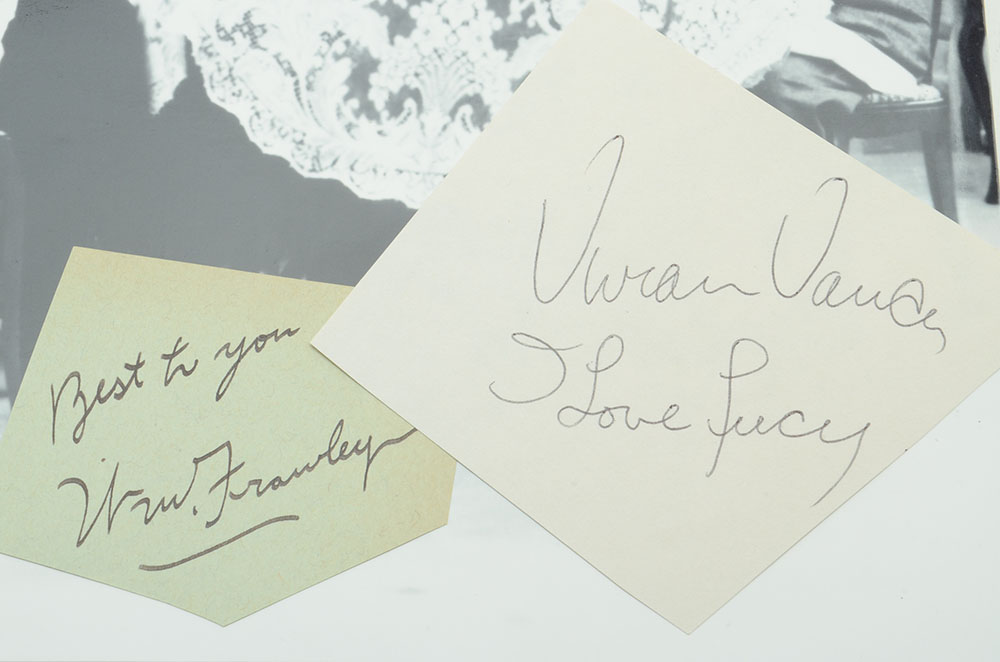 Best to you
Wm. Frawley
Vivian Vance
I Love Lucy